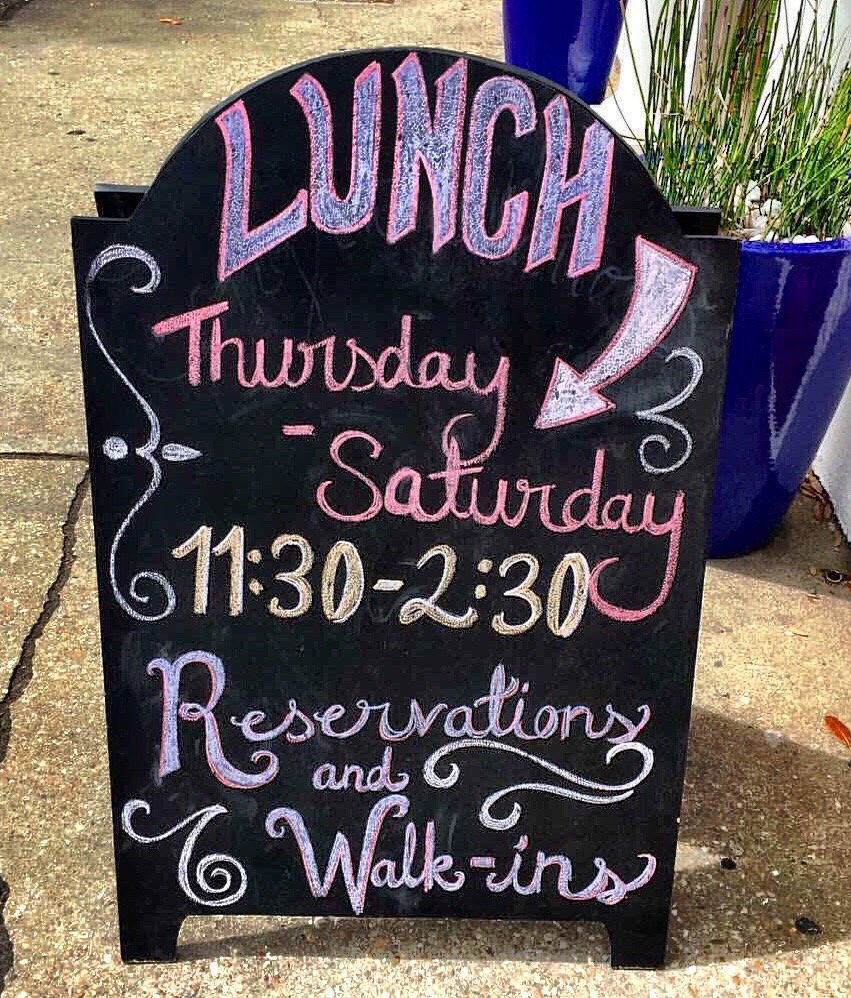 LUNCH
Thursday
-Saturday
11:30-2:30
Reservations
and
Walk-ins